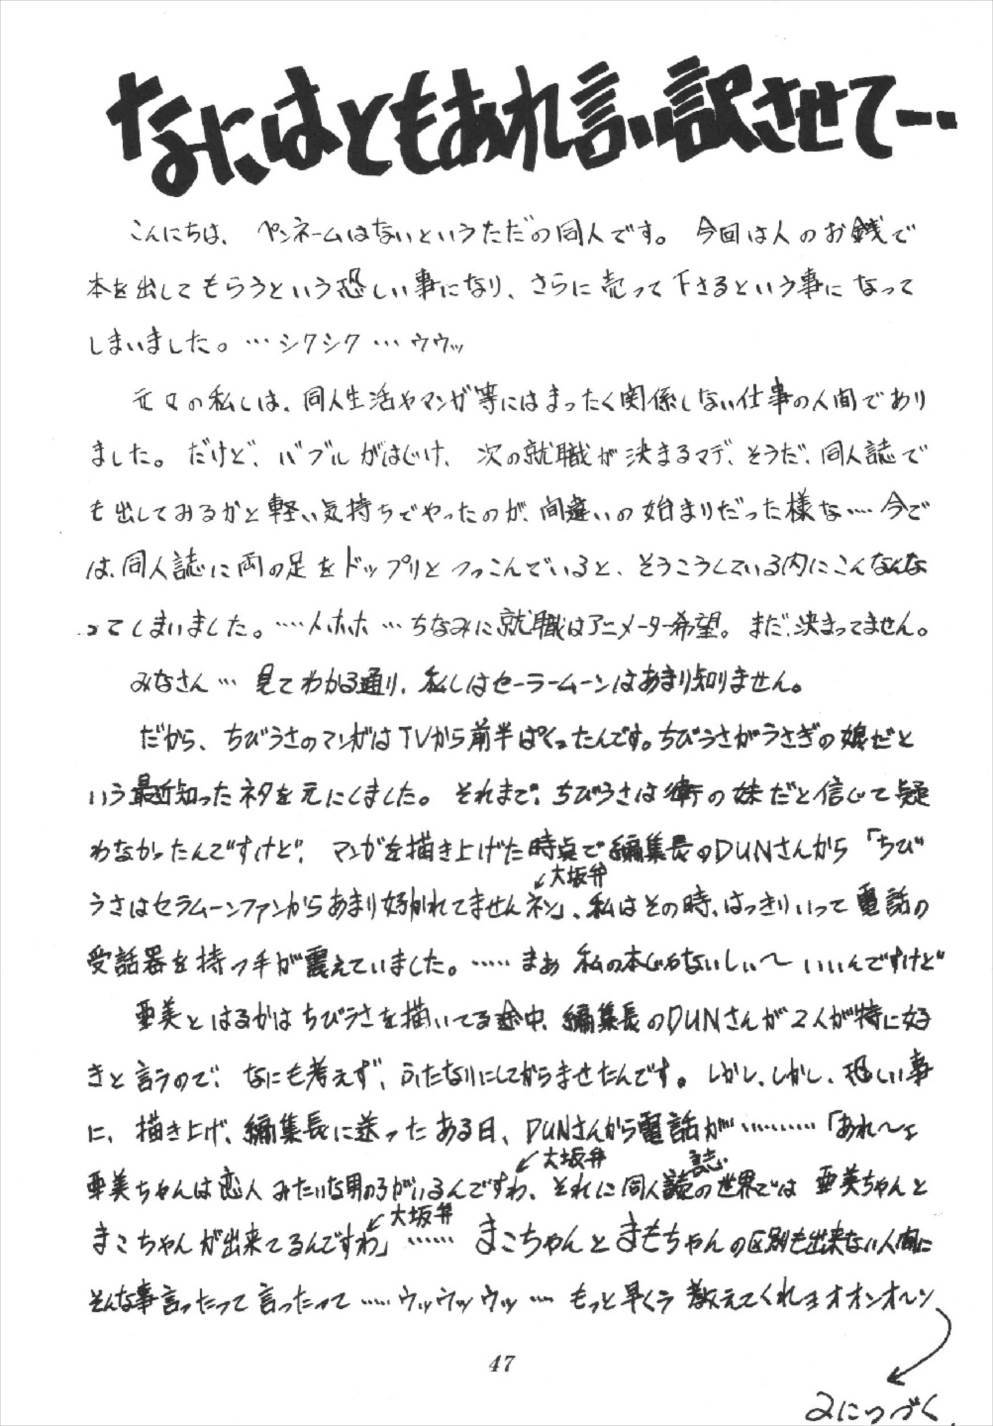 なにはともあれ言い訳させて…
こんにちは、ペンネームはないというただの同人です。今回は人のお銭で
本を出してもらうという恐しい事になり、さらに売って下さるという事になって
しまいました。…シクシク…ウウッ
元々の私しは、同人生活やマンガ等にはまったく関係しない仕事の人間であり
ました。だけど、バブルがはじけ、次の就職が決まるマデ、そうだ、同人誌で
も出してみるかと軽い気持ちでやったのが、間違いの始まりだった様な…今で
は、同人誌に両の足をドップリとつっこんでいると、そうこうしている内にこんなんな
ってしまいました。……ホホ…ちなみに就職はアニメーター希望。まだ、決まってません。
みなさん…見てわかる通り、私しはセーラームーンはあまり知りません。
だから、ちびうさのマンガはTVから前半ぱくったんです。ちびうさがうさぎの娘だと
いう最近知ったネタを元にしました。それまで、ちびうさは衛の妹だと信じて疑
わなかったんですけど、マンガを描き上げた時点で編集長のDUNさんから「ちび
うさはセラムーンファンからあまり好かれてませんネン」、私はその時、はっきりいって電話の
大坂弁
受話器を持つ手が震えていました。……まぁ私の本じゃないしぃ〜いいんですけど
亜美とはるかはちびうさを描いてる途中、編集長のDUNさんが2人が特に好
きと言うので、なにも考えず、ふたなりにしてからませたんです。しかし、しかし、恐しい事
に、描き上げ、編集長に送ったある日、DUNさんから電話が…………「あれ〜ェ
亜美ちゃんは恋人みたいな男の子がいるんですわ、それに同人誌の世界では亜美ちゃんと
大坂弁
まこちゃんが出来てるんですわ」……まこちゃんとまもちゃんの区別も出来ない人間に
大坂弁
そんな事言ったって言ったって……ウッウッウッ…もっと早くう教えてくれョオオンオ〜ン
47
2につづく